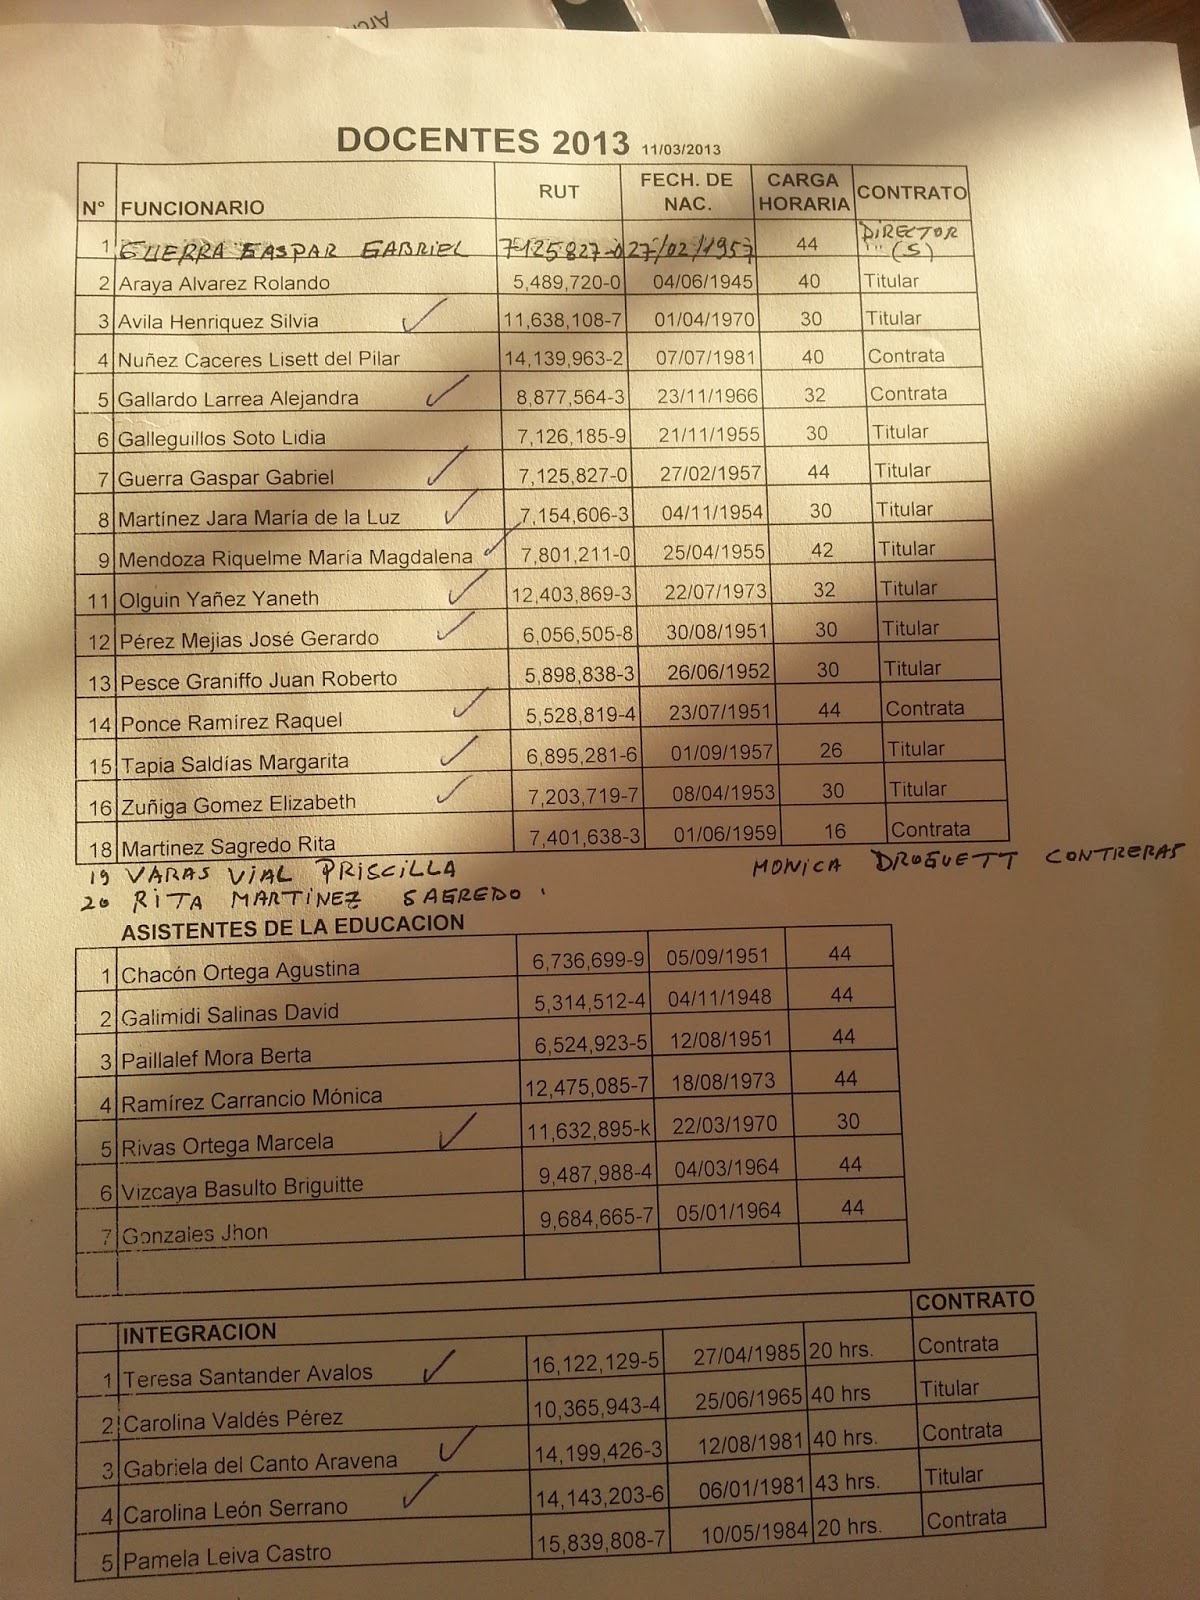 DOCENTES 2013 11/03/2013
N° FUNCIONARIO RUT FECH. DE NAC. CARGA HORARIA CONTRATO
1 GUERRA GASPAR GABRIEL 7125827-0 27/02/1957 44 DIRECTOR (S)
2 Araya Alvarez Rolando 5,489,720-0 04/06/1945 40 Titular
3 Avila Henriquez Silvia 11,638,108-7 01/04/1970 30 Titular
4 Nuñez Caceres Lisett del Pilar 14,139,963-2 07/07/1981 40 Contrata
5 Gallardo Larrea Alejandra 8,877,564-3 23/11/1966 32 Contrata
6 Galleguillos Soto Lidia 7,126,185-9 21/11/1955 30 Titular
7 Guerra Gaspar Gabriel 7,125,827-0 27/02/1957 44 Titular
8 Martínez Jara María de la Luz 7,154,606-3 04/11/1954 30 Titular
9 Mendoza Riquelme María Magdalena 7,801,211-0 25/04/1955 42 Titular
11 Olguin Yañez Yaneth 12,403,869-3 22/07/1973 32 Titular
12 Pérez Mejias José Gerardo 6,056,505-8 30/08/1951 30 Titular
13 Pesce Graniffo Juan Roberto 5,898,838-3 26/06/1952 30 Titular
14 Ponce Ramírez Raquel 5,528,819-4 23/07/1951 44 Contrata
15 Tapia Saldías Margarita 6,895,281-6 01/09/1957 26 Titular
16 Zuñiga Gomez Elizabeth 7,203,719-7 08/04/1953 30 Titular
18 Martinez Sagredo Rita 7,401,638-3 01/06/1959 16 Contrata
19 VARAS VIAL PRISCILLA MONICA DROGUETT CONTRERAS
20 RITA MARTINEZ SAGREDO
ASISTENTES DE LA EDUCACION
1 Chacón Ortega Agustina 6,736,699-9 05/09/1951 44
2 Galimidi Salinas David 5,314,512-4 04/11/1948 44
3 Paillalef Mora Berta 6,524,923-5 12/08/1951 44
4 Ramírez Carrancio Mónica 12,475,085-7 18/08/1973 44
5 Rivas Ortega Marcela 11,632,895-k 22/03/1970 30
6 Vizcaya Basulto Briguitte 9,487,988-4 04/03/1964 44
7 Gonzales Jhon 9,684,665-7 05/01/1964 44
INTEGRACION CONTRATO
1 Teresa Santander Avalos 16,122,129-5 27/04/1985 20 hrs. Contrata
2 Carolina Valdés Pérez 10,365,943-4 25/06/1965 40 hrs Titular
3 Gabriela del Canto Aravena 14,199,426-3 12/08/1981 40 hrs. Contrata
4 Carolina León Serrano 14,143,203-6 06/01/1981 43 hrs. Titular
5 Pamela Leiva Castro 15,839,808-7 10/05/1984 20 hrs. Contrata